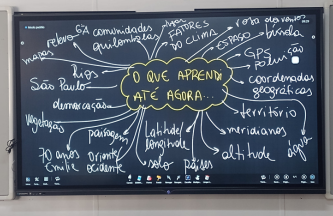 comunidades
quilombolas
FATORES
DO CLIMA
rosa dos ventos
bússola
ESPAÇO
relevo
mapas
GPS
Rios
São Paulo
O QUE APRENDI
ATÉ AGORA...
coordenadas
geográficas
demarcação
território
vegetação
paisagem
latitude/
longitude
meridianos
70 anos
Emilie
oriente
ocidente
solo
países
altitude
água